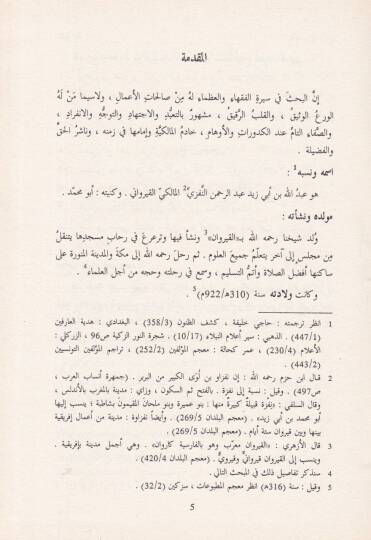 المقدمة
إنَّ البحثَ في سيرةِ الفقهاءِ والعظماءِ لهُ مِنْ صالحاتِ الأعمالِ ، ولاسيما مَنْ لَهُ
الورعُ الوثيقُ ، والقلبُ الرَّقيقُ ، مشهورٌ بالتعبُّدِ والاجتهادِ والتوجُّهِ والانفرادِ ،
والصَّفاءِ التامِّ عند الكدوراتِ والأوهامِ ، خادمُ المالكيَّةِ وإمامها في زمنه ، وناشرُ الحقِّ
والفضيلة .
اسمه ونسبه1 :
هو عبدُ الله بن أبي زيد عبد الرحمن النَّفْزي2 المالكيّ القيرواني . وكنيته : أبو محمَّد .
مولده ونشأته :
وُلد شيخنا رحمه الله بـ«القيروان»3 ونشأ فيها وترعرعَ في رحابِ مسجدِها يتنقلُ
مِن مجلسٍ إلى آخر يتعلَّمُ جميعَ العلومِ . ثم رحلَ رحمه الله إلى مكةَ والمدينةِ المنورة على
ساكنها أفضلُ الصلاة وأتمُّ التسليم ، وسمع في رحلتِه وحجه من أجل العلماء4 .
وكانت ولادته سنة (310هـ/922م)5 .
1 انظر ترجمته : حاجي خليفة ، كشف الظنون (358/3) ، البغدادي : هدية العارفين
(447/1) . الذهبي : سير أعلام النبلاء (10/17) . شجرة النور الزكية ص96 ، الزركلي :
الأعلام (230/4) ، عمر كحالة : معجم المؤلفين (252/2) ، تراجم المؤلفين التونسيين
(443/2) .
2 قال ابن حزم رحمه الله : إن نفزاو بن لُوَى الكبير من البربر . (جمهرة أنساب العرب ،
ص497) . وقيل : نسبة إلى نَفْزة . بالفتح ثم السكون ، وزاي : مدينة بالمغرب بالأندلس ،
وقال السلفي : «نَفْزة قبيلةٌ كبيرةٌ منها : بنو عميرة وبنو ملحان المقيمون بشاطبة ؛ ينسب إليها
أبو محمد بن أبي زيد» . (معجم البلدان 269/5) . وأيضاً نفزاوة : مدينة من أعمال إفريقية
بينها وبين قيروان ستة أيام . (معجم البلدان 269/5) .
3 قال الأزهري : «القيروان معرَّب وهو بالفارسية كاروان» . وهي أجمل مدينة بإفريقية .
وينسب إلى القيروان قيروانيٌّ وقَيرويٌّ . (معجم البلدان 420/4) .
4 سنذكر تفاصيل ذلك في المبحث التالي .
5 وقيل : سنة (316هـ) انظر معجم المطبوعات ، سزكين (32/2) .
5